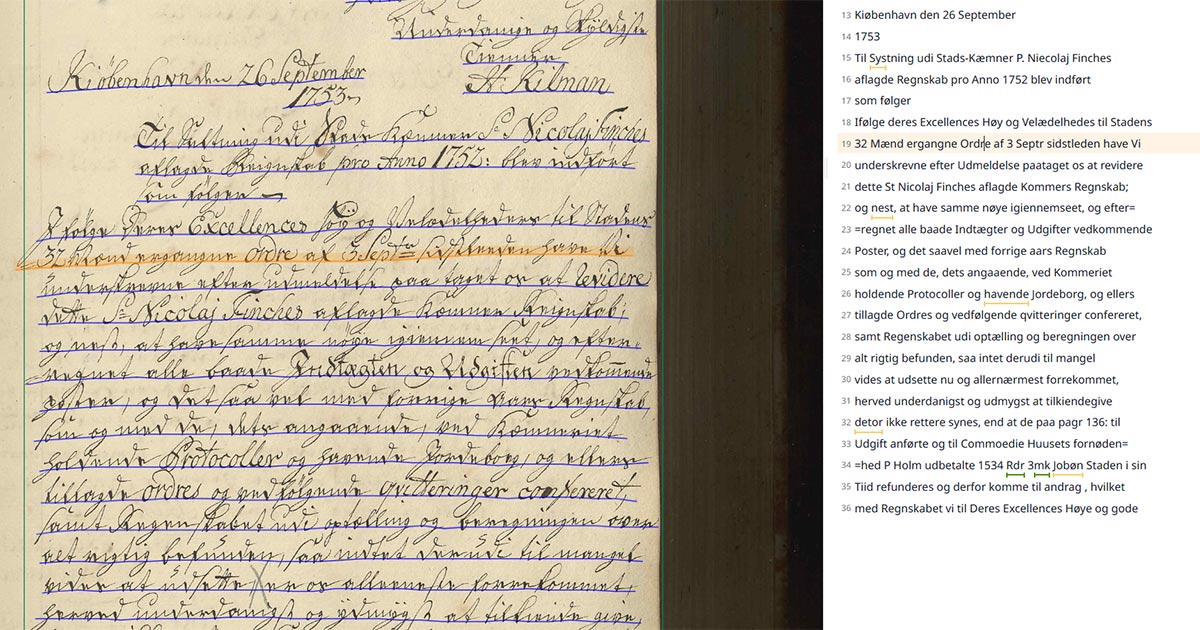 Underdanige og Skyldigste
Tiennere
Kiøbenhavn den 26 September
1753
Kilman
Til udi Stads Kæmner Sr Nicolaj Finches
aflagde Reignskab pro Anno 1752: blev indført
som følger
I følge Deres Excellences Høy og Velædelheders til Stadens
32 Mænd ergangne Ordre af 3 Septr sidstleeden have Vi
underskrevne efter udmeldelse paa taget os at Revidere
dette Sr Nicolaj Finches aflagde Kæmner Reignskab;
og nest, at have samme nøye igiennem seet, og efter=
=regnet alle baade Indtægten og Udgiften vedkommende
poster, og det saa vel med forrige Aars Regnskab,
som og med de, dets angaaende, ved Kæmneriet
holdende Protocoller og havende Jordebog, og ellers
tillagde ordres og vedfølgende qvitteringer confereret,
samt Regenskabet udi optælling og beregningen over
alt rigtig befunden, saa intet derudi til mangel
vides at udsette, er os allerneste forrekommet,
herved underdanigst og ydmygst at tilkiende give,
13 Kiøbenhavn den 26 September
14 1753
15 Til Systning udi Stads-Kæmner P. Niecolaj Finches
16 aflagde Regnskab pro Anno 1752 blev indført
17 som følger
18 Ifølge deres Excellences Høy og Velædelhedes til Stadens
19 32 Mænd ergangne Ordre af 3 Septr sidstleden have Vi
20 underskrevne efter Udmeldelse paataget os at revidere
21 dette St Nicolaj Finches aflagde Kommers Regnskab;
22 og nest, at have samme nøye igiennemseet, og efter=
23 =regnet alle baade Indtægter og Udgifter vedkommende
24 Poster, og det saavel med forrige aars Regnskab
25 som og med de, dets angaaende, ved Kommeriet
26 holdende Protocoller og havende Jordeborg, og ellers
27 tillagde Ordres og vedfølgende qvitteringer confereret,
28 samt Regenskabet udi optælling og beregningen over
29 alt rigtig befunden, saa intet derudi til mangel
30 vides at udsette nu og allernærmest forrekommet,
31 herved underdanigst og udmygst at tilkiendegive
32 detor ikke rettere synes, end at de paa pagr 136: til
33 Udgift anførte og til Commoedie Huusets fornøden=
34 =hed P Holm udbetalte 1534 Rdr 3mk Jobøn Staden i sin
35 Tiid refunderes og derfor komme til andrag , hvilket
36 med Regnskabet vi til Deres Excellences Høye og gode